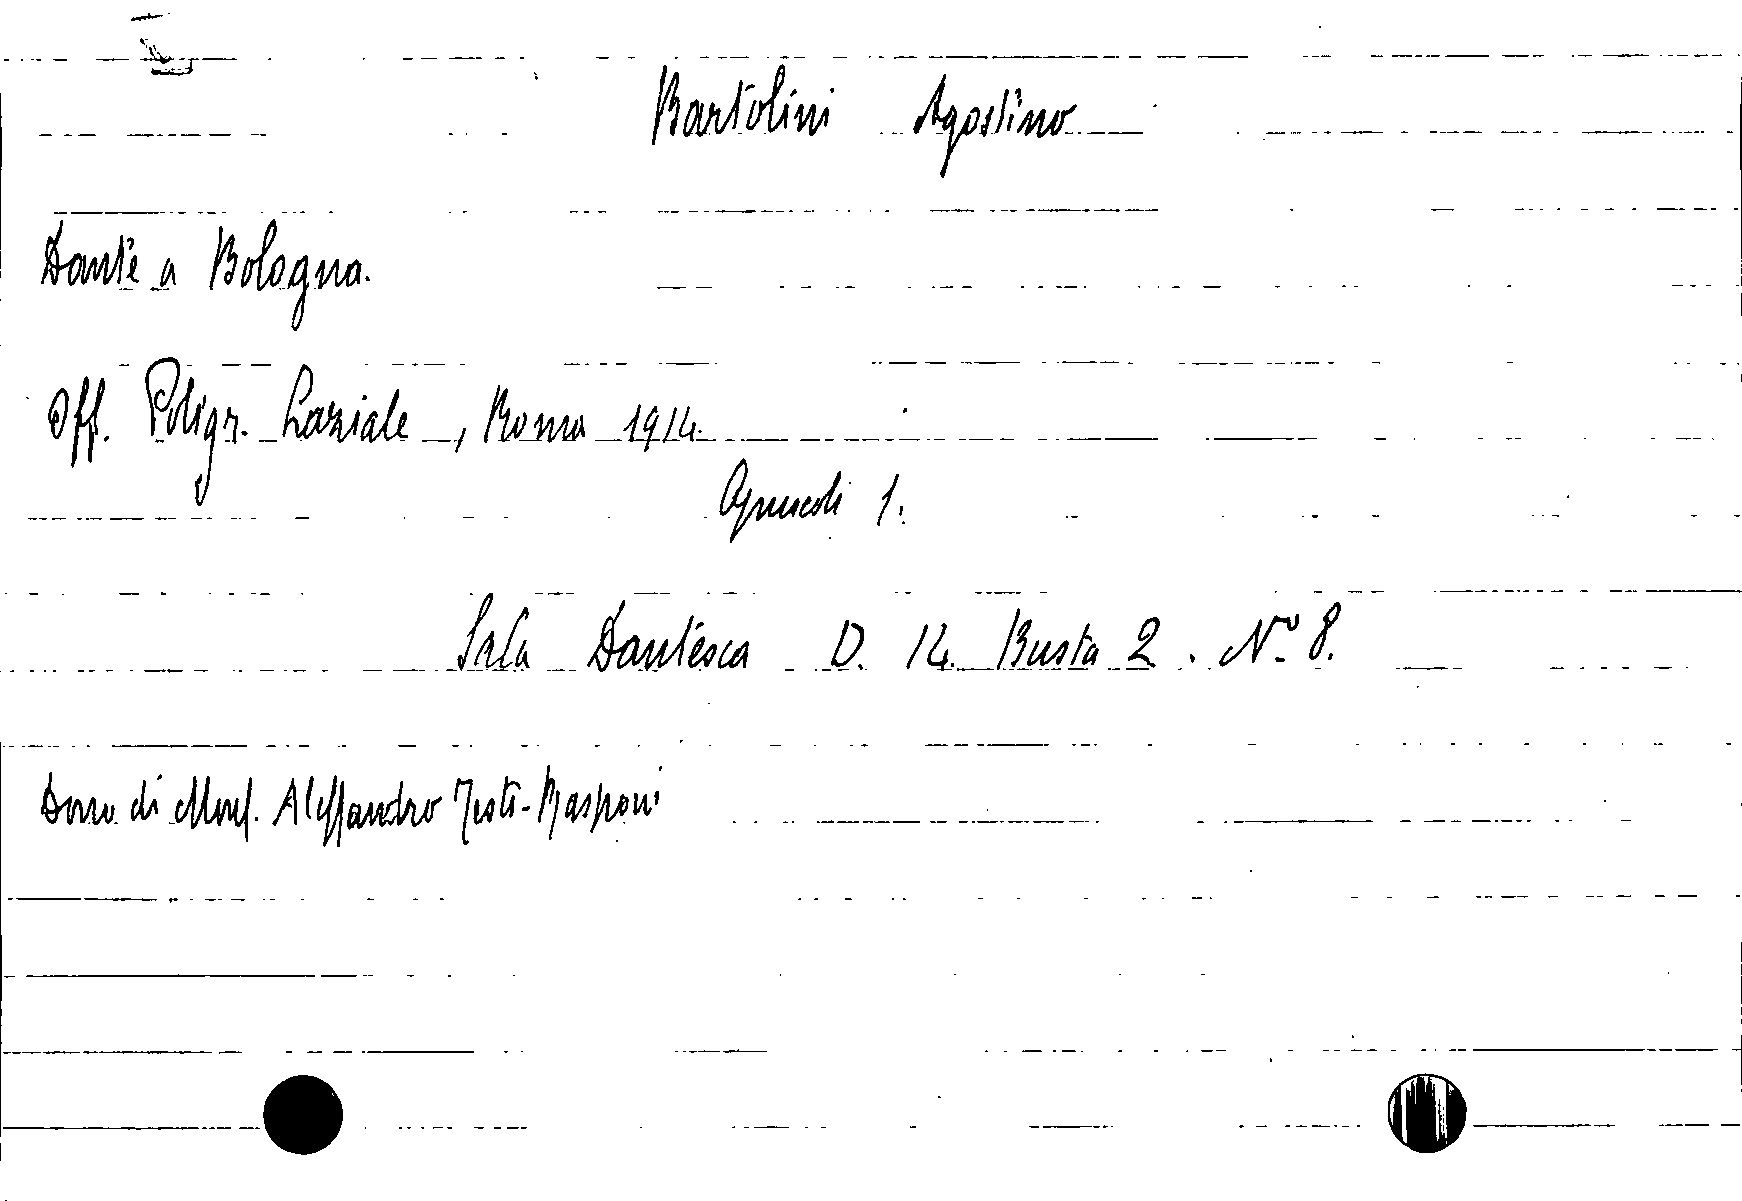 Bartolini Agostino
Dante a Bologna.
Off. Poligr. Laziale, Roma 1914.
Opuscoli 1.
Sala Dantesca D. 14. Busta 2. No. 8.
Dono di Mons. Alessandro Testi-Rasponi